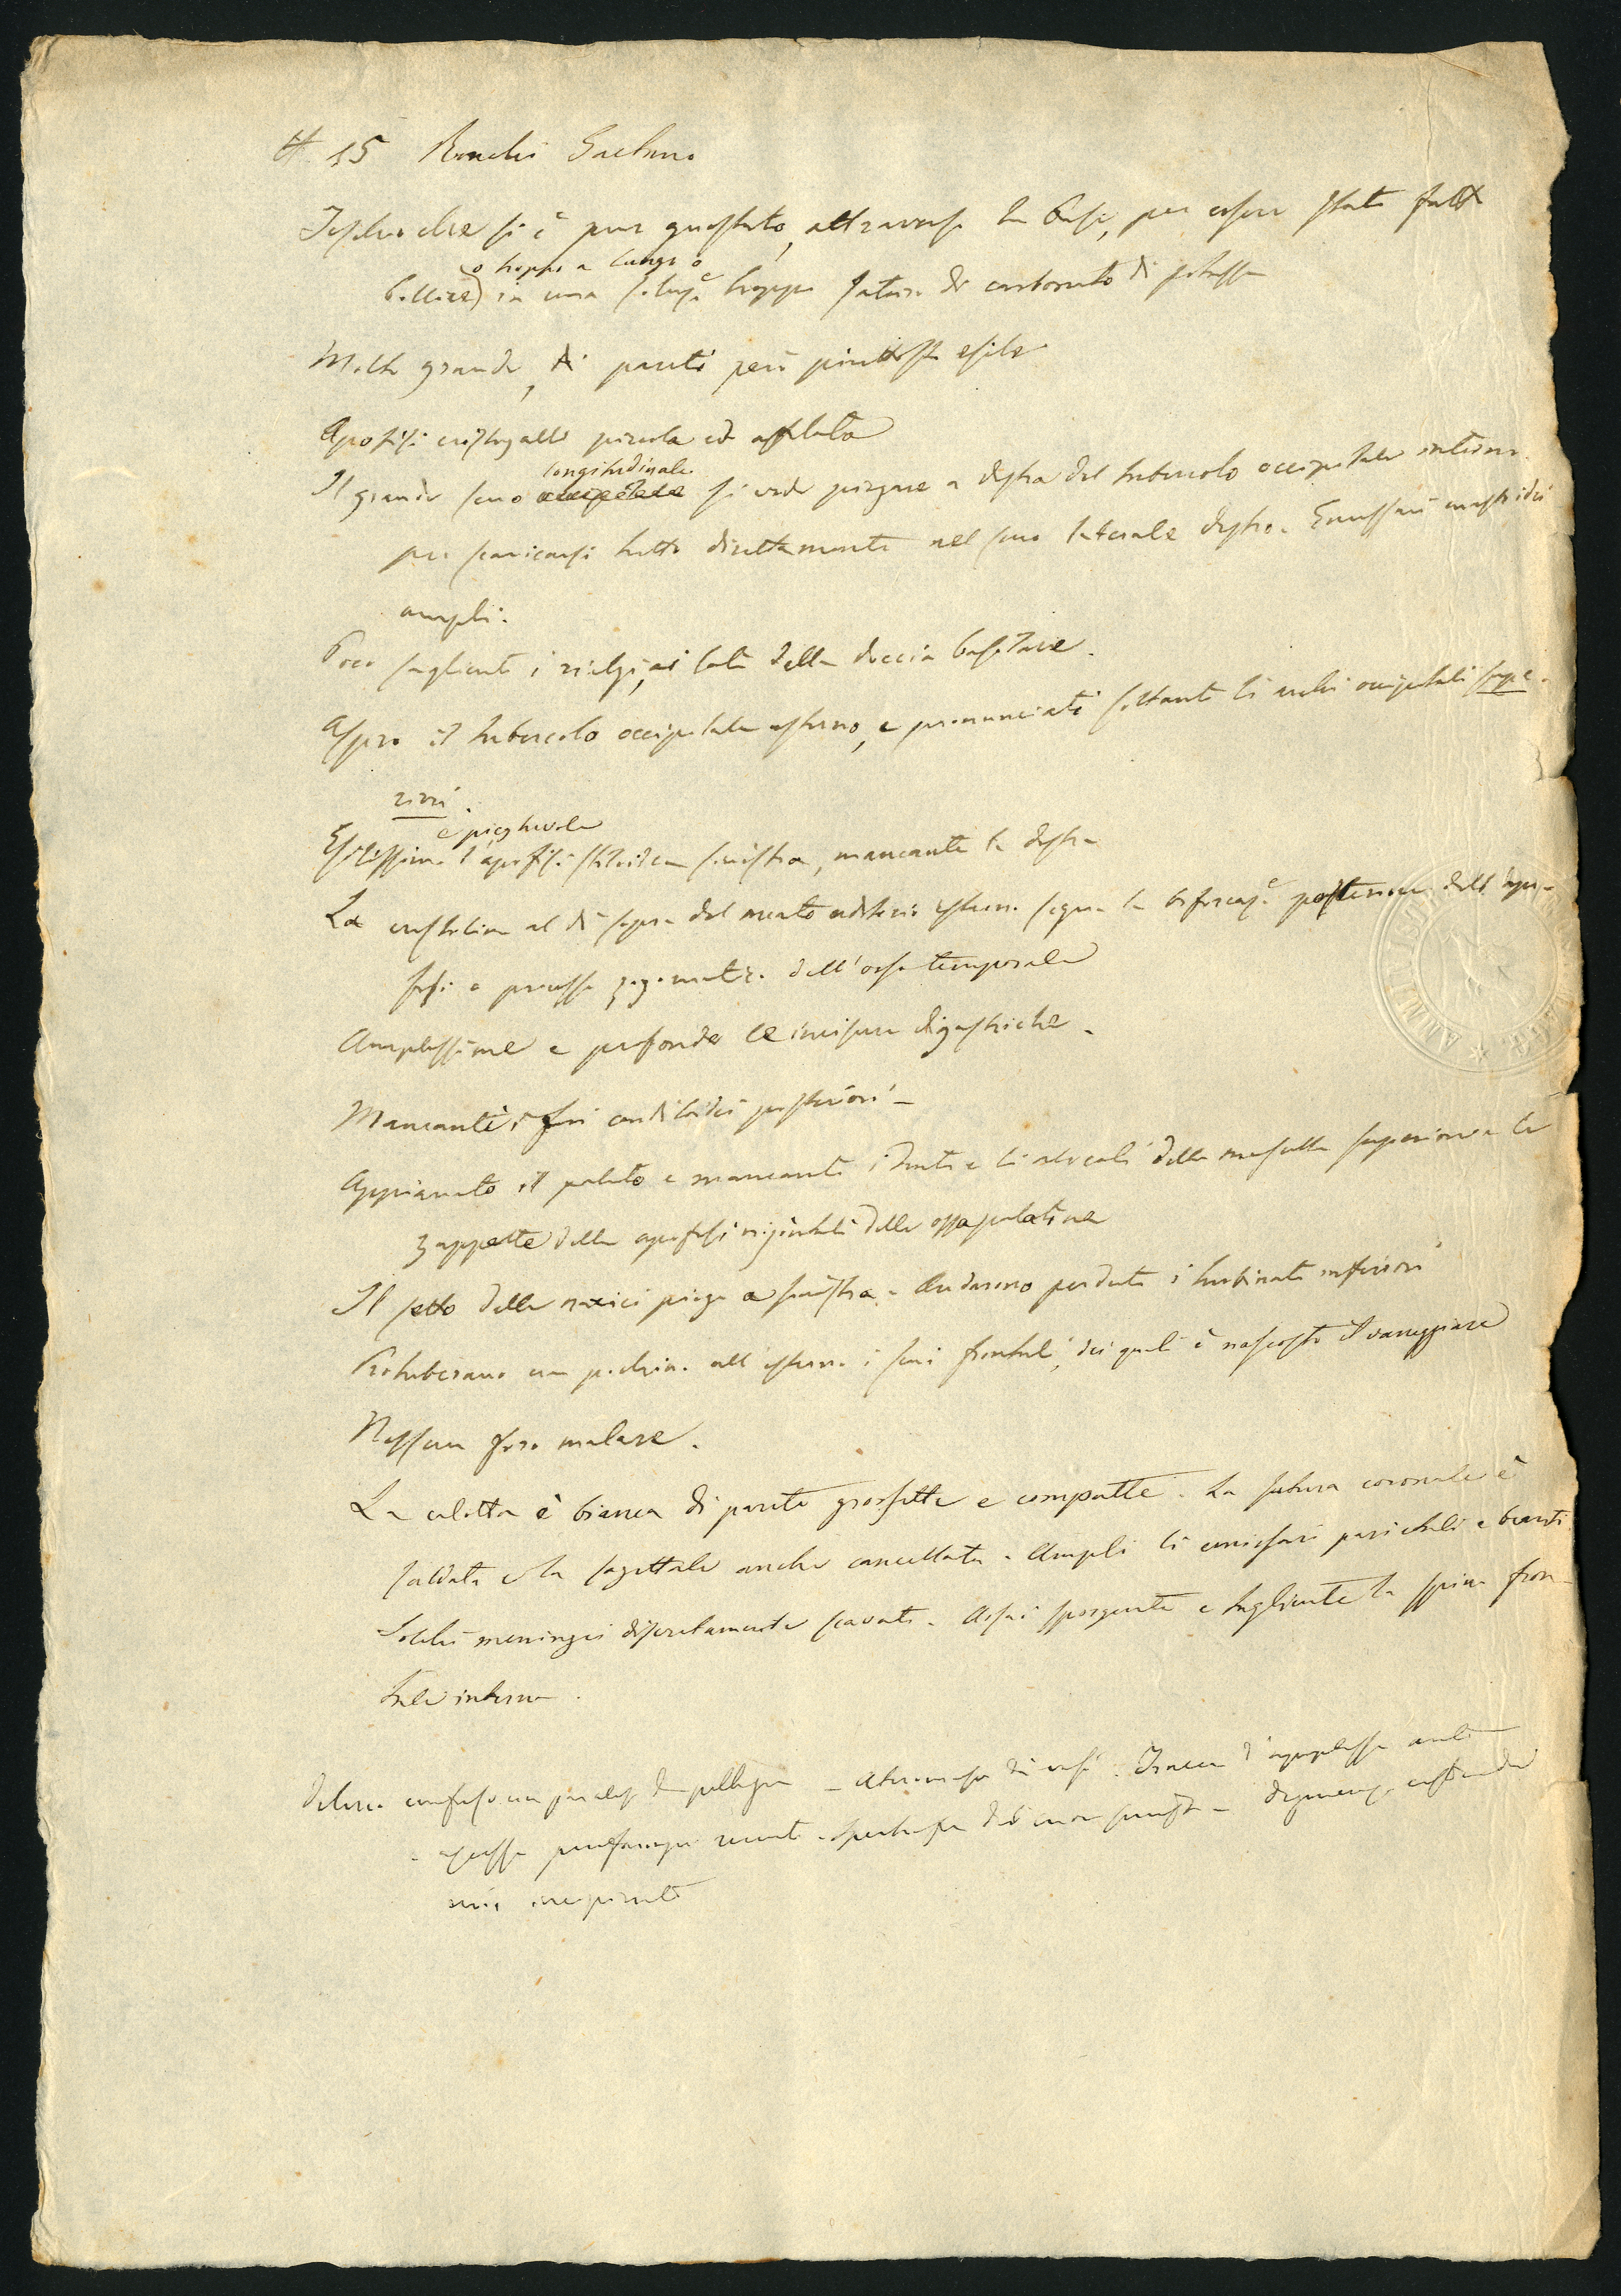 # 15 Ronchi Gaetano
Teschio che si è pur guastato, attraverso la base, per essere stato fatto
o troppo a lungo o
bollire) in una soluz.e troppo satura di carbonato di potassa
Molto grande, di pareti però piuttosto esile
Apofisi cristagalli piccola ed affilata
longitudinale
Il grande seno occipitale si vede piegare a destra del tubercolo occipitale interno
per scaricarsi tutto direttamente nel seno laterale destro. Emissari mastoidei
ampli.
Poco saglienti i rialzi, ai lati della doccia basilare.
Aspro il tubercolo occipitale esterno, e pronunciati soltanto li archi occipitali supe-
riori.
e pieghevole
Esilissima l'apofisi stiloidea sinistra, mancante la destra
La crestolina al di sopra del meato uditorio esterno segna la biforcaz.e posteriore dell' apo-
fisi o processo zigomatico dell'osso temporale
Amplissime e profonde le incisure digastriche.
Mancanti i fori condiloidei posteriori
Appianato il palato e mancanti i denti e li alveoli della mascella superiore e le
zappette delle apofisi orizzontali delle ossa palatine
Il setto delle narici piega a sinistra. Andarono perduti i turbinati inferiori
Protuberano un pochino all'esterno i seni frontali, dei quali è nascosto il vaneggiare
Nessun foro malare.
La calotta è bianca di pareti grossette e compatte. La sutura coronale è
saldata e la sagittale anche cancellata. Ampli li emissari parietali e beanti.
Solchi meningei discretamente scavati. Assai sporgente e tagliente la spina fron-
tale interna.
Delirio confuso con paralisi da pellagra - Ateromasia dei vasi. Tracce d'apoplessia anti-